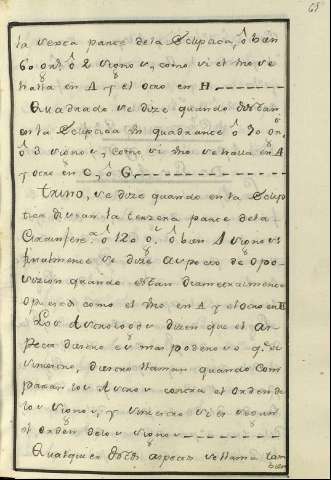 61
la sexta parte de la Eclíptica, ô bien
60 grs. ô 2 signos, como si el Uno se
halla en A y el otro en H.
Quadrado se dize quando distan
en la Ecliptica un quadrante ô 90 grs.
ô 3 signos, como si Uno se halla en A
y otro en C, ô G,
Trino, se dize quando en la Eclip
tica distan la terzera parte de la
Circunfera. ô 120 ô bien 4 signos
finalmente se dize aspecto de opo-
sizion quando estan diametralmente
opuestos como el Uno en A y el otro en E
Los Astrologos dizen que el as-
pecto diestro es mas poderoso q.e el
siniestro, diestro llaman quando com
paran los Astros contra el orden de
los signos, y siniestro si es segun
el orden de los signos
Qualquier de estos aspectos se llama tam
bien